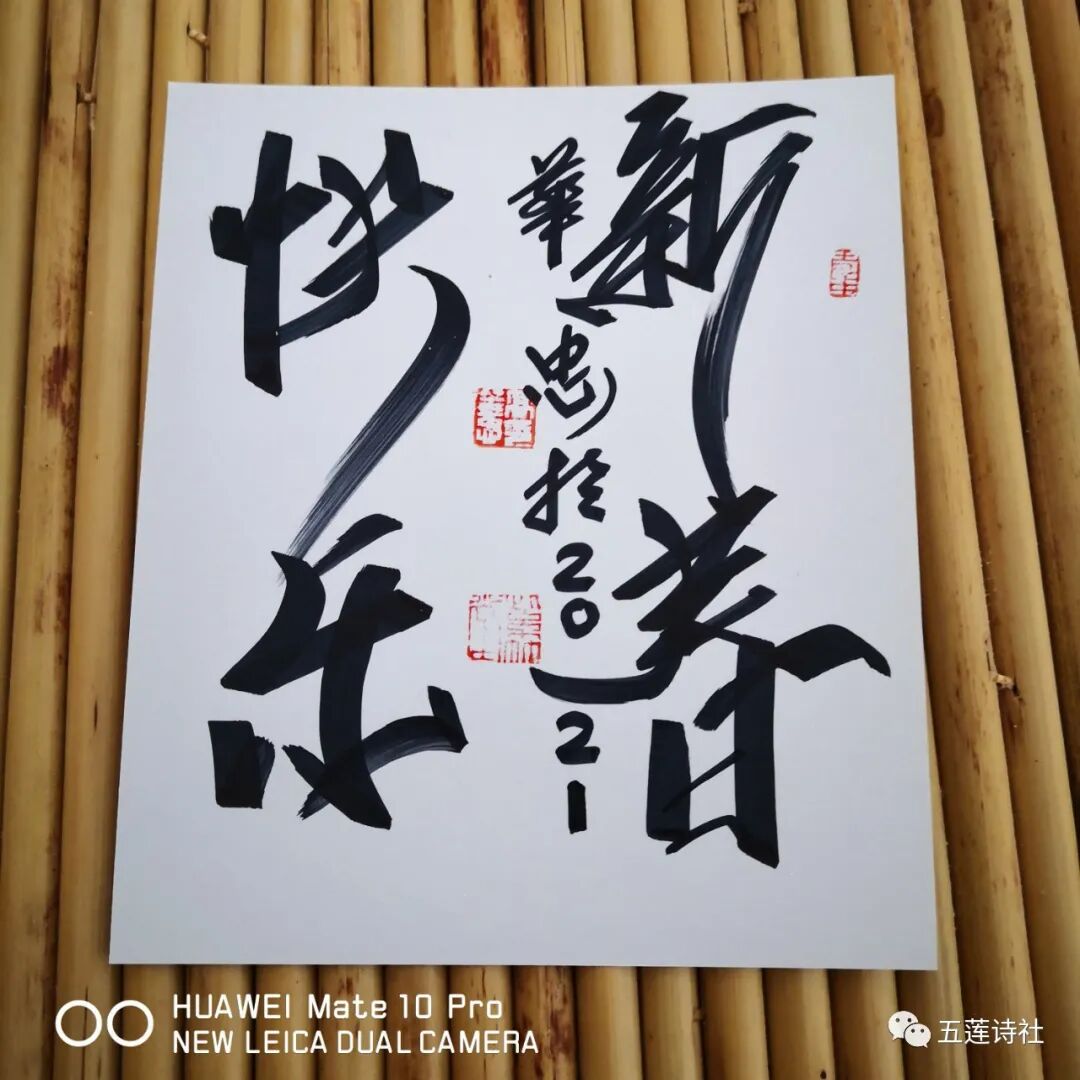 新春
快乐
華忠於2021
HUAWEI Mate 10 Pro
NEW LEICA DUAL CAMERA
五莲诗社